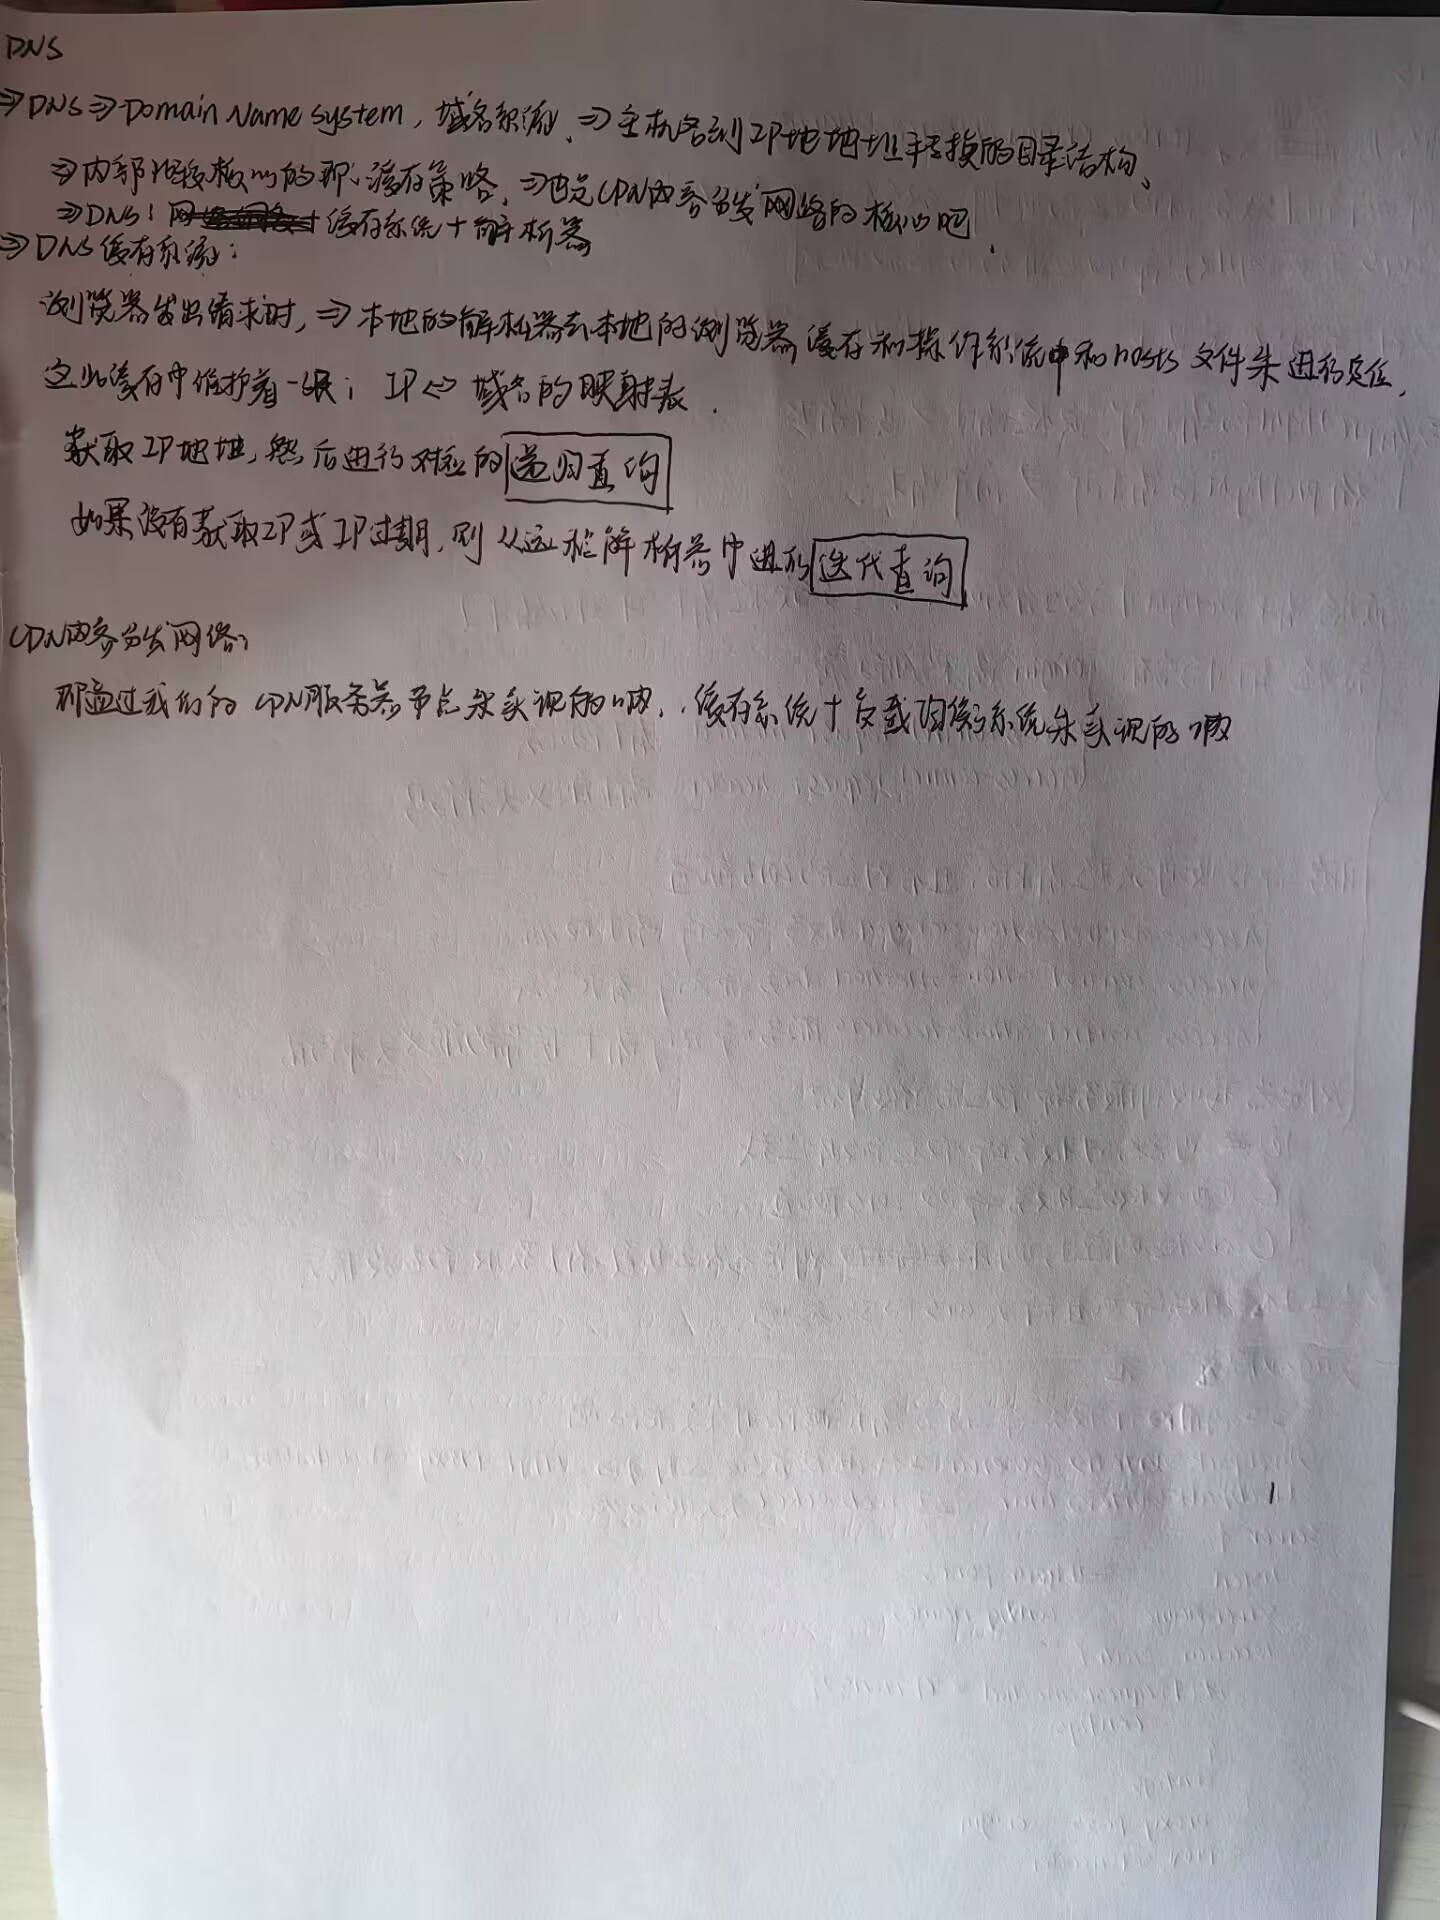 DNS
⇒DNS⇒Domain Name system, 域名系统, ⇒主机名到IP地地址转换的目录结构、
⇒内部比较核心的即:缓存策略, ⇒也是CDN内容分发网络的核心吧.
⇒DNS: 网 缓存系统+解析器
⇒DNS缓存系统:
浏览器发出请求时, ⇒本地的解析器去本地的浏览器缓存和操作系统中和hosts文件来进行定位,
这些缓存中维护着一张: IP⇔域名的映射表.
获取IP地址, 然后进行对应的递归查询
如果没有获取IP或IP过期, 则从远程解析器中进行迭代查询
CDN内容分发网络:
即通过我们的CDN服务器节点来实现的呐, 缓存系统+负载均衡系统来实现的呐